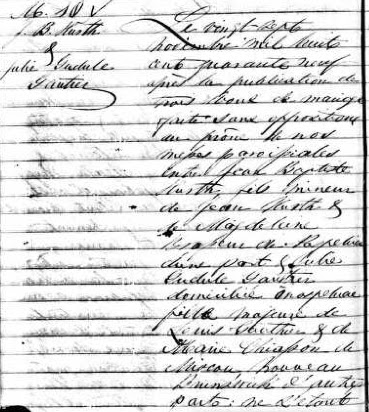 M. 18
J. B. Hurth
&
Julie Gudule
Gautier
Le vingt sept
novembre mil huit
cent quarante neuf
après la publication de
trois bans de mariage
faite sans opposition
au prône de nos
messes paroissiales
entre Jean Baptiste
Hurth, fils mineur
de Jean Hurth &
de Magdeleine
de
d'une part & Julie
Gudule Gautier
domiciliée
fille majeure de
Louis Gautier & de
Marie Chiasson de
Nouveau
Brunswick d'autre
part; ne